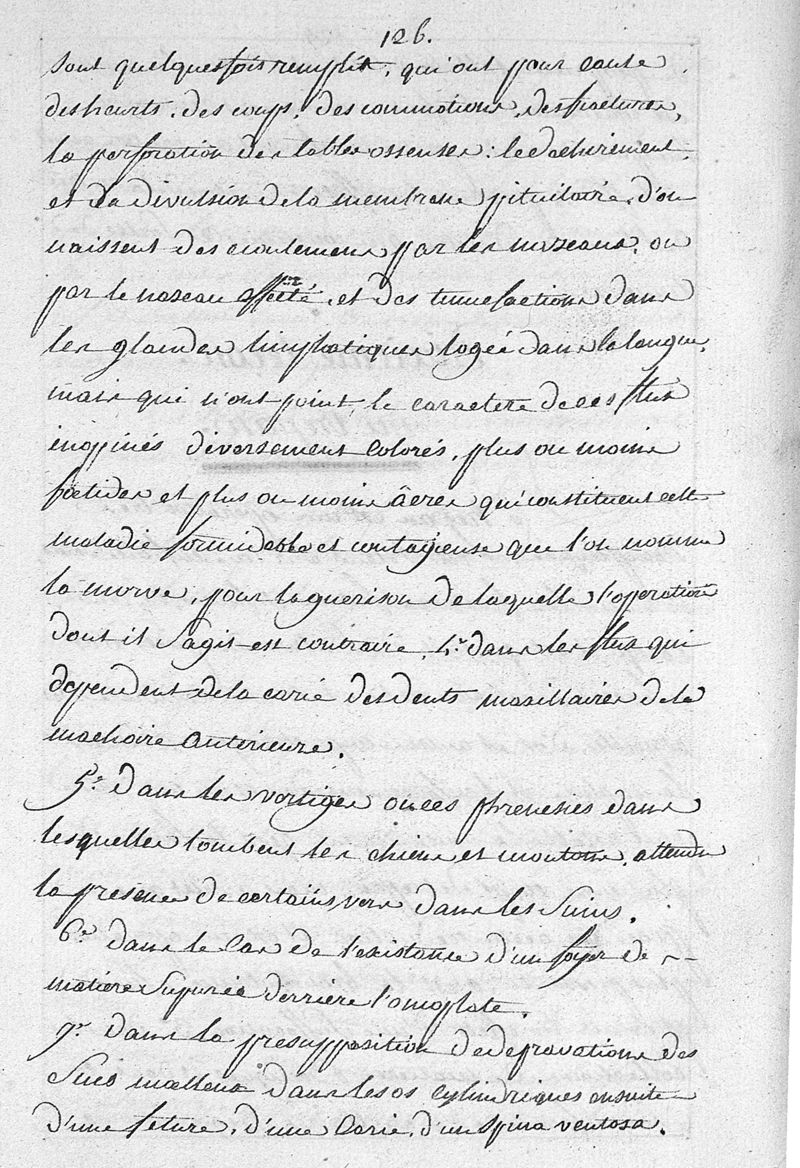 126.
sont quelquesfois remplit, qu'ont pour cause
des heurts, des coups, des commotions, des fractures,
la perforation des tables osseuses: le dechirement
et la divulsion de la membrane pituitaire, d'ou
naissent des ecoulemens par les nazeaux, ou
par le nazeau affecté, et des tumefactions dans
les glandes limphatiques logée dans la langue,
mais qui n'ont point le caractere de ces flux
inopinés diversement colorés, plus ou moins
fœtides et plus ou moins âcres qui constituent cette
maladie formidable et contagieuse que l'on nomme
la morve, pour la guerison de laquelle l'operation
dont il s'agit est contraire, 4.e dans les flux qui
dependent de la carie des dents maxillaires de la
machoire anterieure.
5.e dans les vertiges ou ces phrenesies dans
lesquelles tombent les chiens et moutons, attendu
la presence de certains vers dans les Sinus.
6.e dans le Cas de l'existence d'un foyer de
matiere Supurée derriere l'omoplate.
7.e dans la presupposition de depravations des
Sucs mœlleux dans les os cylindriques ensuite
d'une feture, d'une Carie, d'un Spina ventosa.